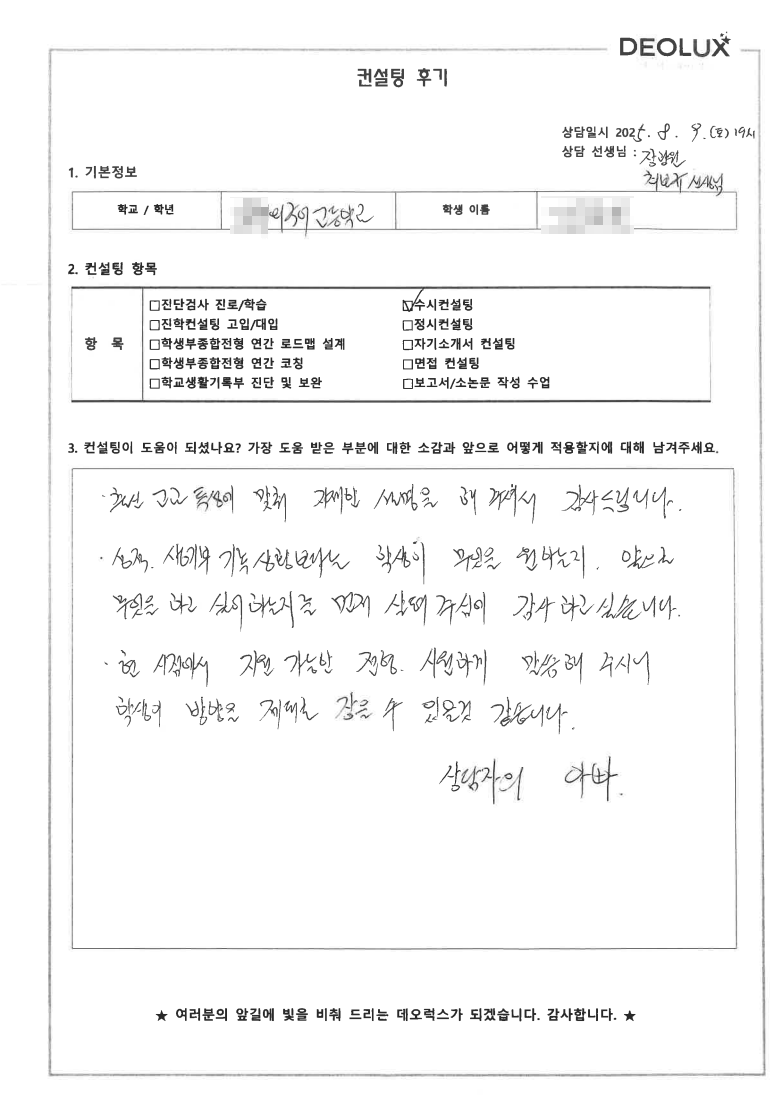 DEOLUX
컨설팅 후기
상담일시 2025. 8. 9. (토) 19시
상담 선생님 :
선생님
1. 기본정보
학교 / 학년 외국어 고등학교 학생 이름
2. 컨설팅 항목
항 목
□진단검사 진로/학습 ☑수시컨설팅
□진학컨설팅 고입/대입 □정시컨설팅
□학생부종합전형 연간 로드맵 설계 □자기소개서 컨설팅
□학생부종합전형 연간 코칭 □면접 컨설팅
□학교생활기록부 진단 및 보완 □보고서/소논문 작성 수업
3. 컨설팅이 도움이 되셨나요? 가장 도움 받은 부분에 대한 소감과 앞으로 어떻게 적용할지에 대해 남겨주세요.
· 출신 고교 특성에 맞춰 자세한 설명을 해 주셔서 감사드립니다.
· 성적. 생기부 기록 상황보다는 학생이 무엇을 원하는지. 앞으로
무엇을 하고 싶어 하는지를 먼저 살펴 주심에 감사 하고 싶습니다.
· 현 시점에서 지원 가능한 전형. 시원하게 말씀해 주시니
학생이 방향을 제대로 잡을 수 있을것 같습니다.
상담자의 아빠.
★ 여러분의 앞길에 빛을 비춰 드리는 데오럭스가 되겠습니다. 감사합니다. ★